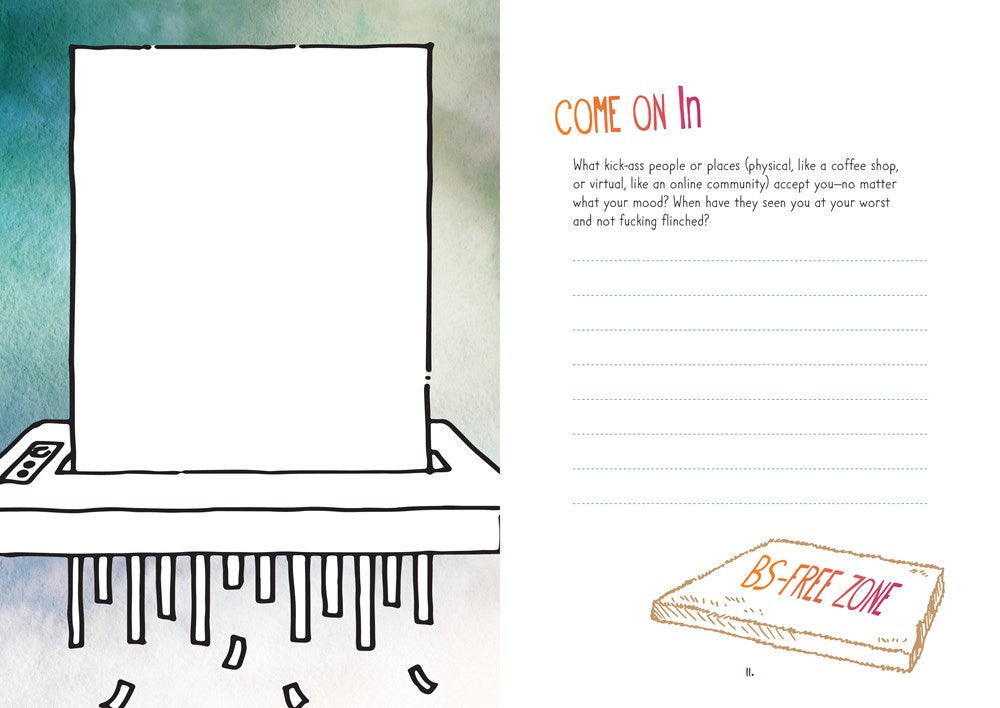 COME ON In
What kick-ass people or places (physical, like a coffee shop,
or virtual, like an online community) accept you—no matter
what your mood? When have they seen you at your worst
and not fucking flinched?
BS-FREE ZONE
11.